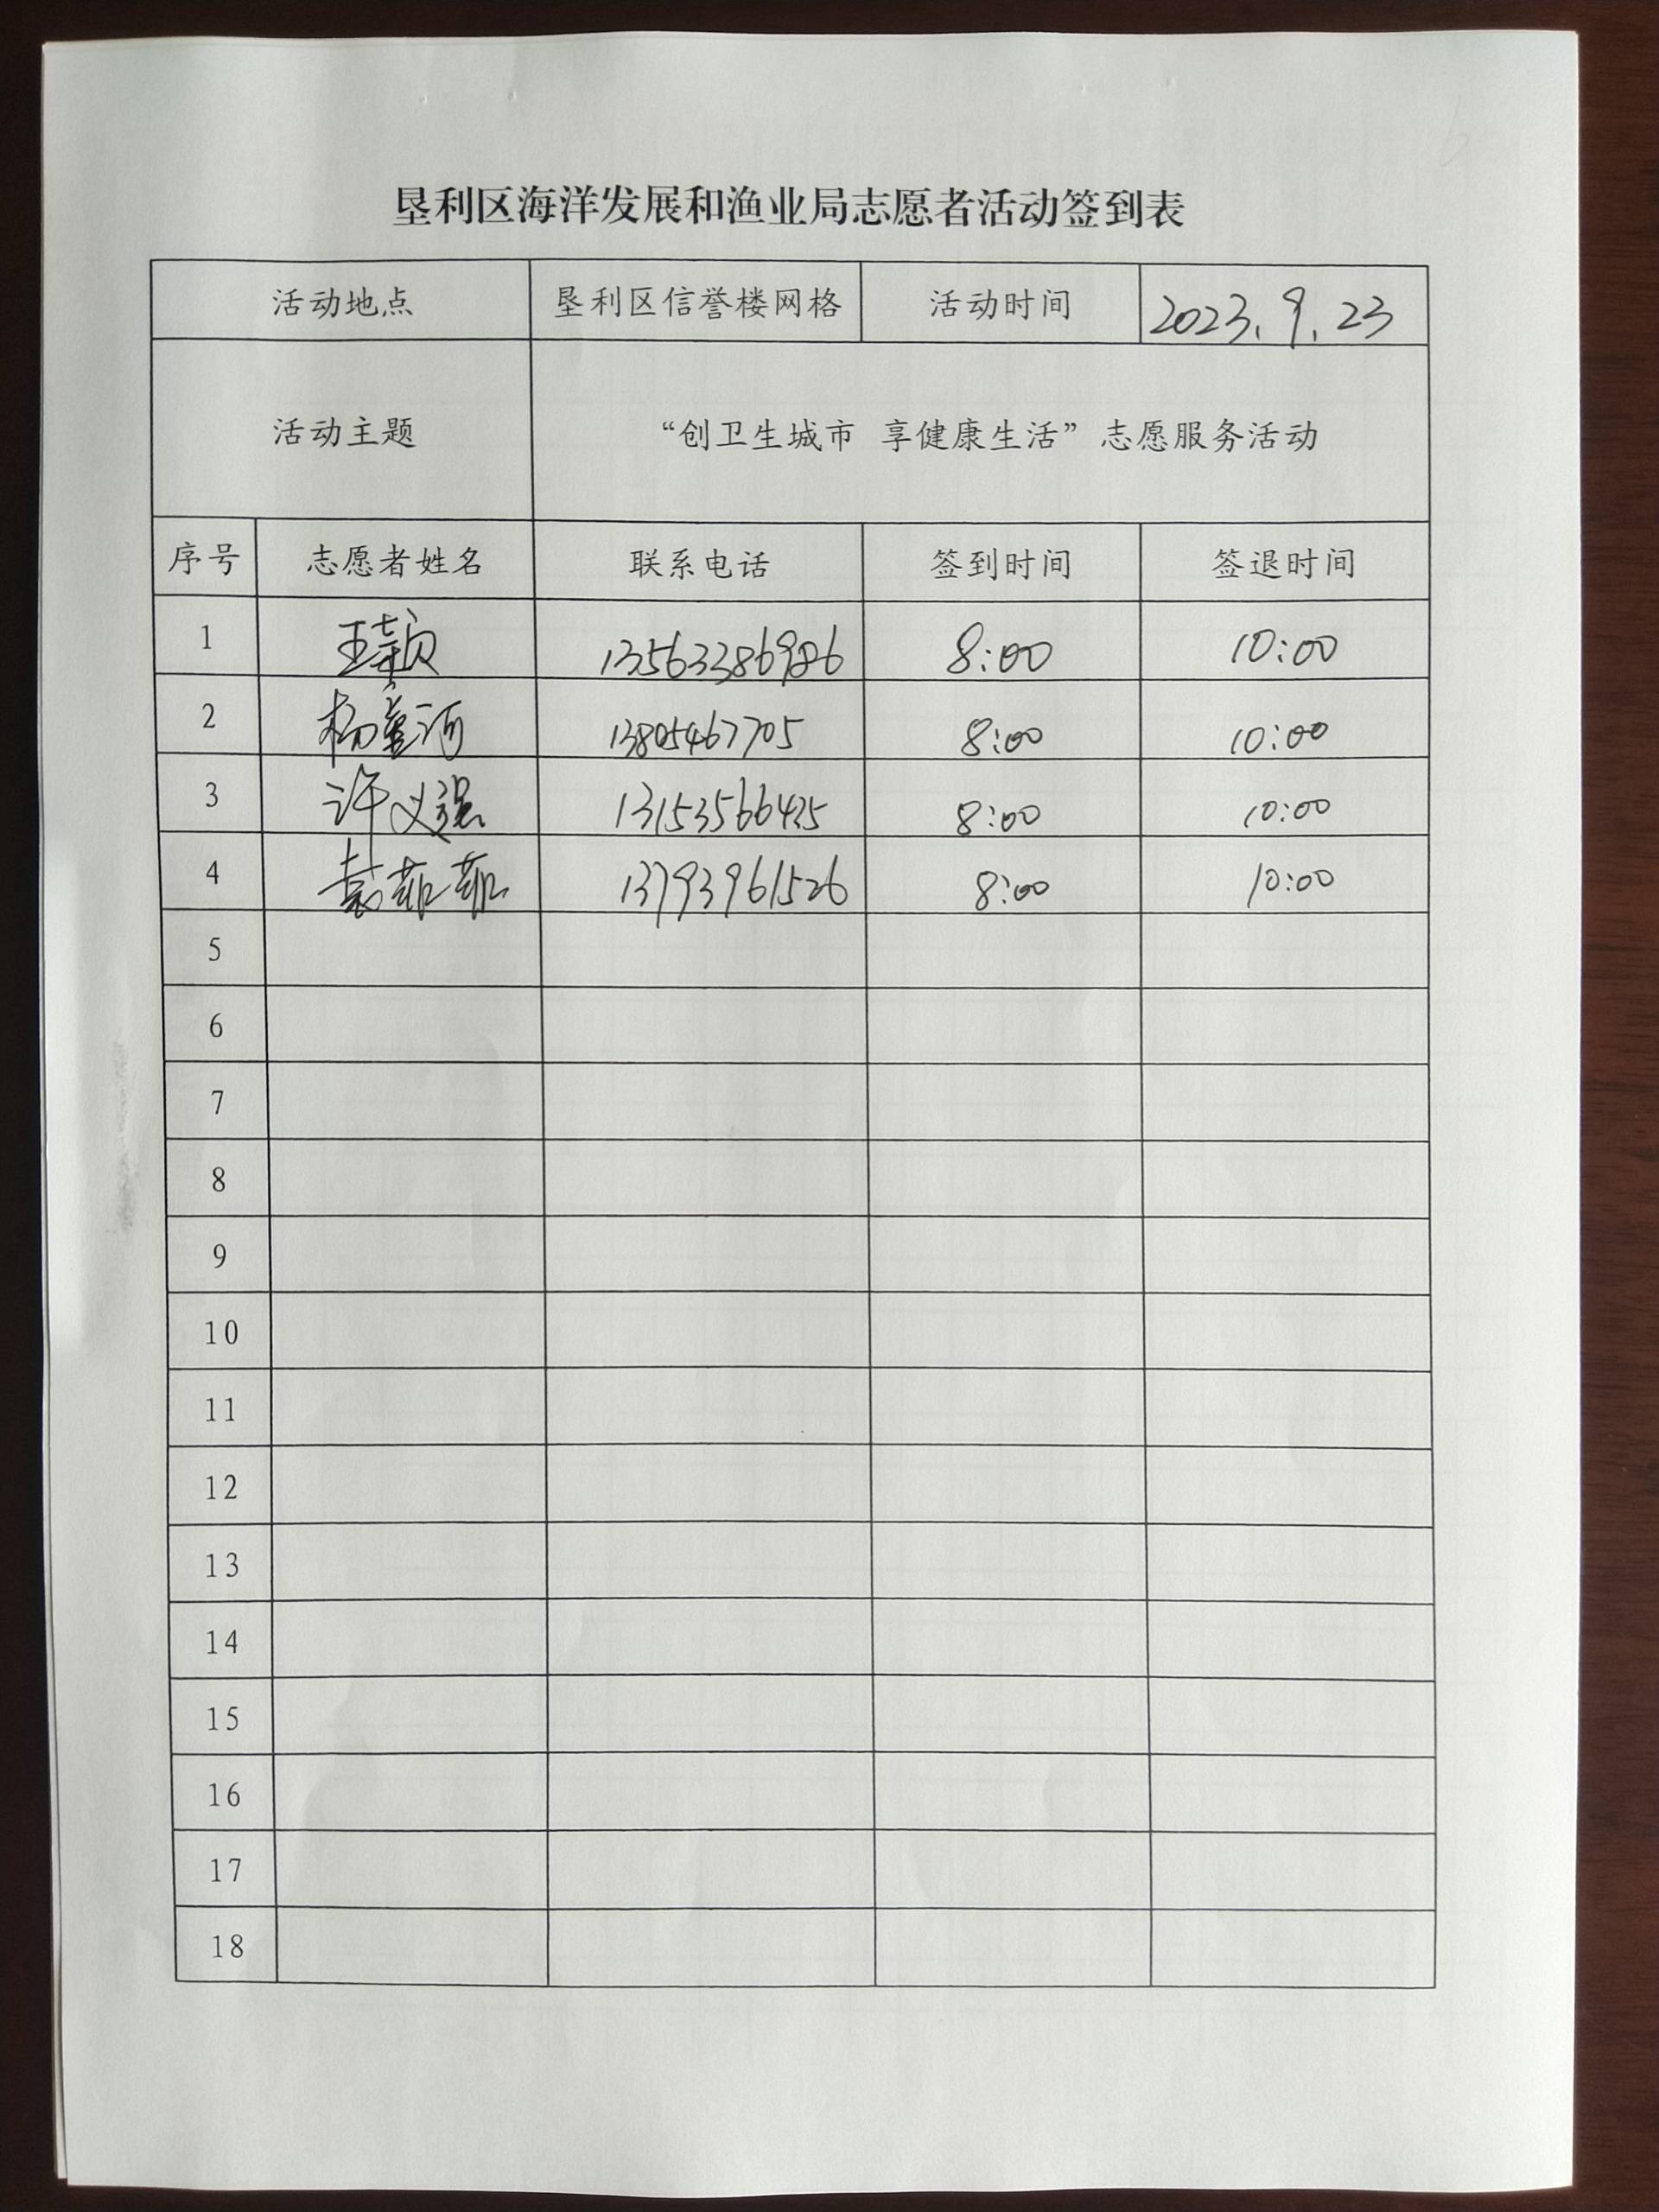 垦利区海洋发展和渔业局志愿者活动签到表
活动地点 垦利区信誉楼网格 活动时间 2023.9.23
活动主题 “创卫生城市 享健康生活”志愿服务活动
序号 志愿者姓名 联系电话 签到时间 签退时间
1 王颖 13563386986 8:00 10:00
2 杨董河 13805467705 8:00 10:00
3 许义强 13153566425 8:00 10:00
4 袁菲菲 13793961526 8:00 10:00
5
6
7
8
9
10
11
12
13
14
15
16
17
18